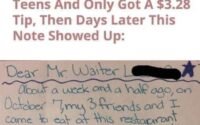 Teens And Only Got A $3.28
Tip, Then Days Later This
Note Showed Up:
Dear Mr Waiter L
About a week and a half ago, on
October 7, my 3 friends and I
came to eat at this restaurant